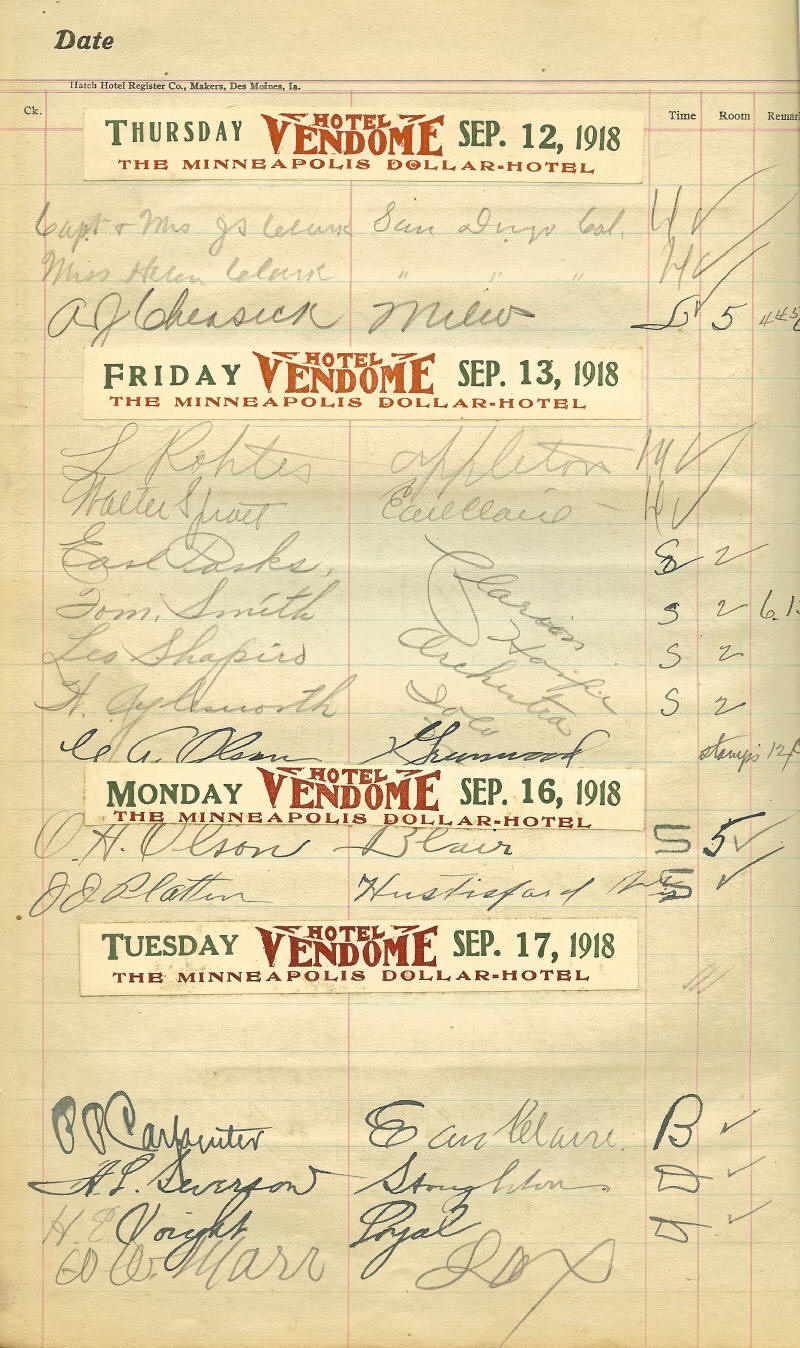 Date
Hatch Hotel Register Co., Makers, Des Moines, Ia.
Ck. Time Room Remark
THURSDAY HOTEL VENDOME SEP. 12, 1918
THE MINNEAPOLIS DOLLAR-HOTEL
Capt & Mrs JS Clark San Diego Cal.
Miss Helen Clark " " "
A J Cheasick Milw 5
FRIDAY HOTEL VENDOME SEP. 13, 1918
THE MINNEAPOLIS DOLLAR-HOTEL
L Rohtes Appleton
Walter Spratt Eau Claire
Earl Parks, S 2
Tom. Smith Clarion S 2
Leo Shapiro Harpe S 2
H. Aylesworth Orchestra S 2
C A. Olson Greenwood stamps 12
MONDAY HOTEL VENDOME SEP. 16, 1918
THE MINNEAPOLIS DOLLAR-HOTEL
O. H. Olson Blair S 5
J J Platten Hustisford Wis S
TUESDAY HOTEL VENDOME SEP. 17, 1918
THE MINNEAPOLIS DOLLAR-HOTEL
P P Carpenter Eau Claire B
H. L. Severson Stoughton D
H. E Voight Loyal D
W. Marr